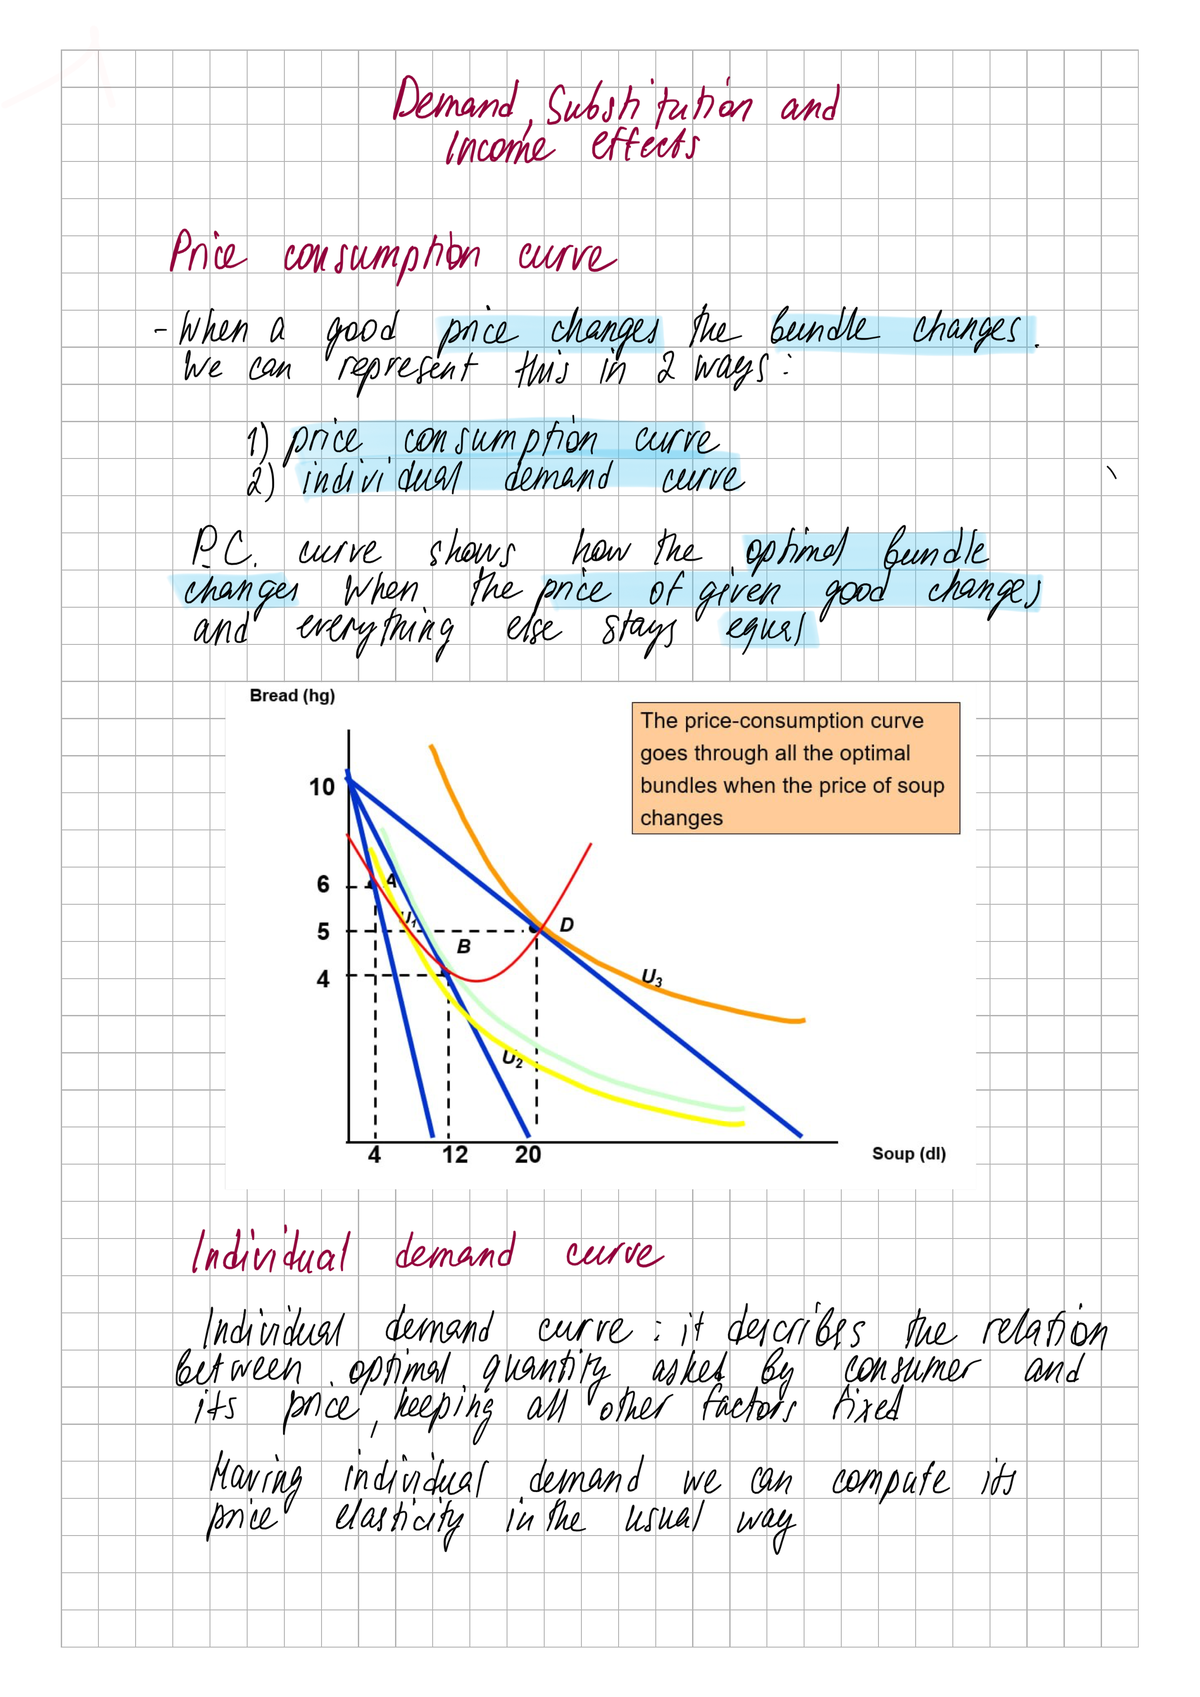 Demand, Substitution and
Income effects
Price consumption curve
- When a good price changes the bundle changes.
We can represent this in 2 ways:
1) price consumption curve
2) individual demand curve
P.C. curve shows how the optimal bundle
changes when the price of given good changes
and everything else stays equal
Bread (hg)
The price-consumption curve
goes through all the optimal
bundles when the price of soup
changes
10
6
A
5
U1
D
B
4
U3
U2
4 12 20
Soup (dl)
Individual demand curve
Individual demand curve: it describes the relation
between optimal quantity asked by consumer and
its price, keeping all other factors fixed
Having individual demand we can compute its
price elasticity in the usual way